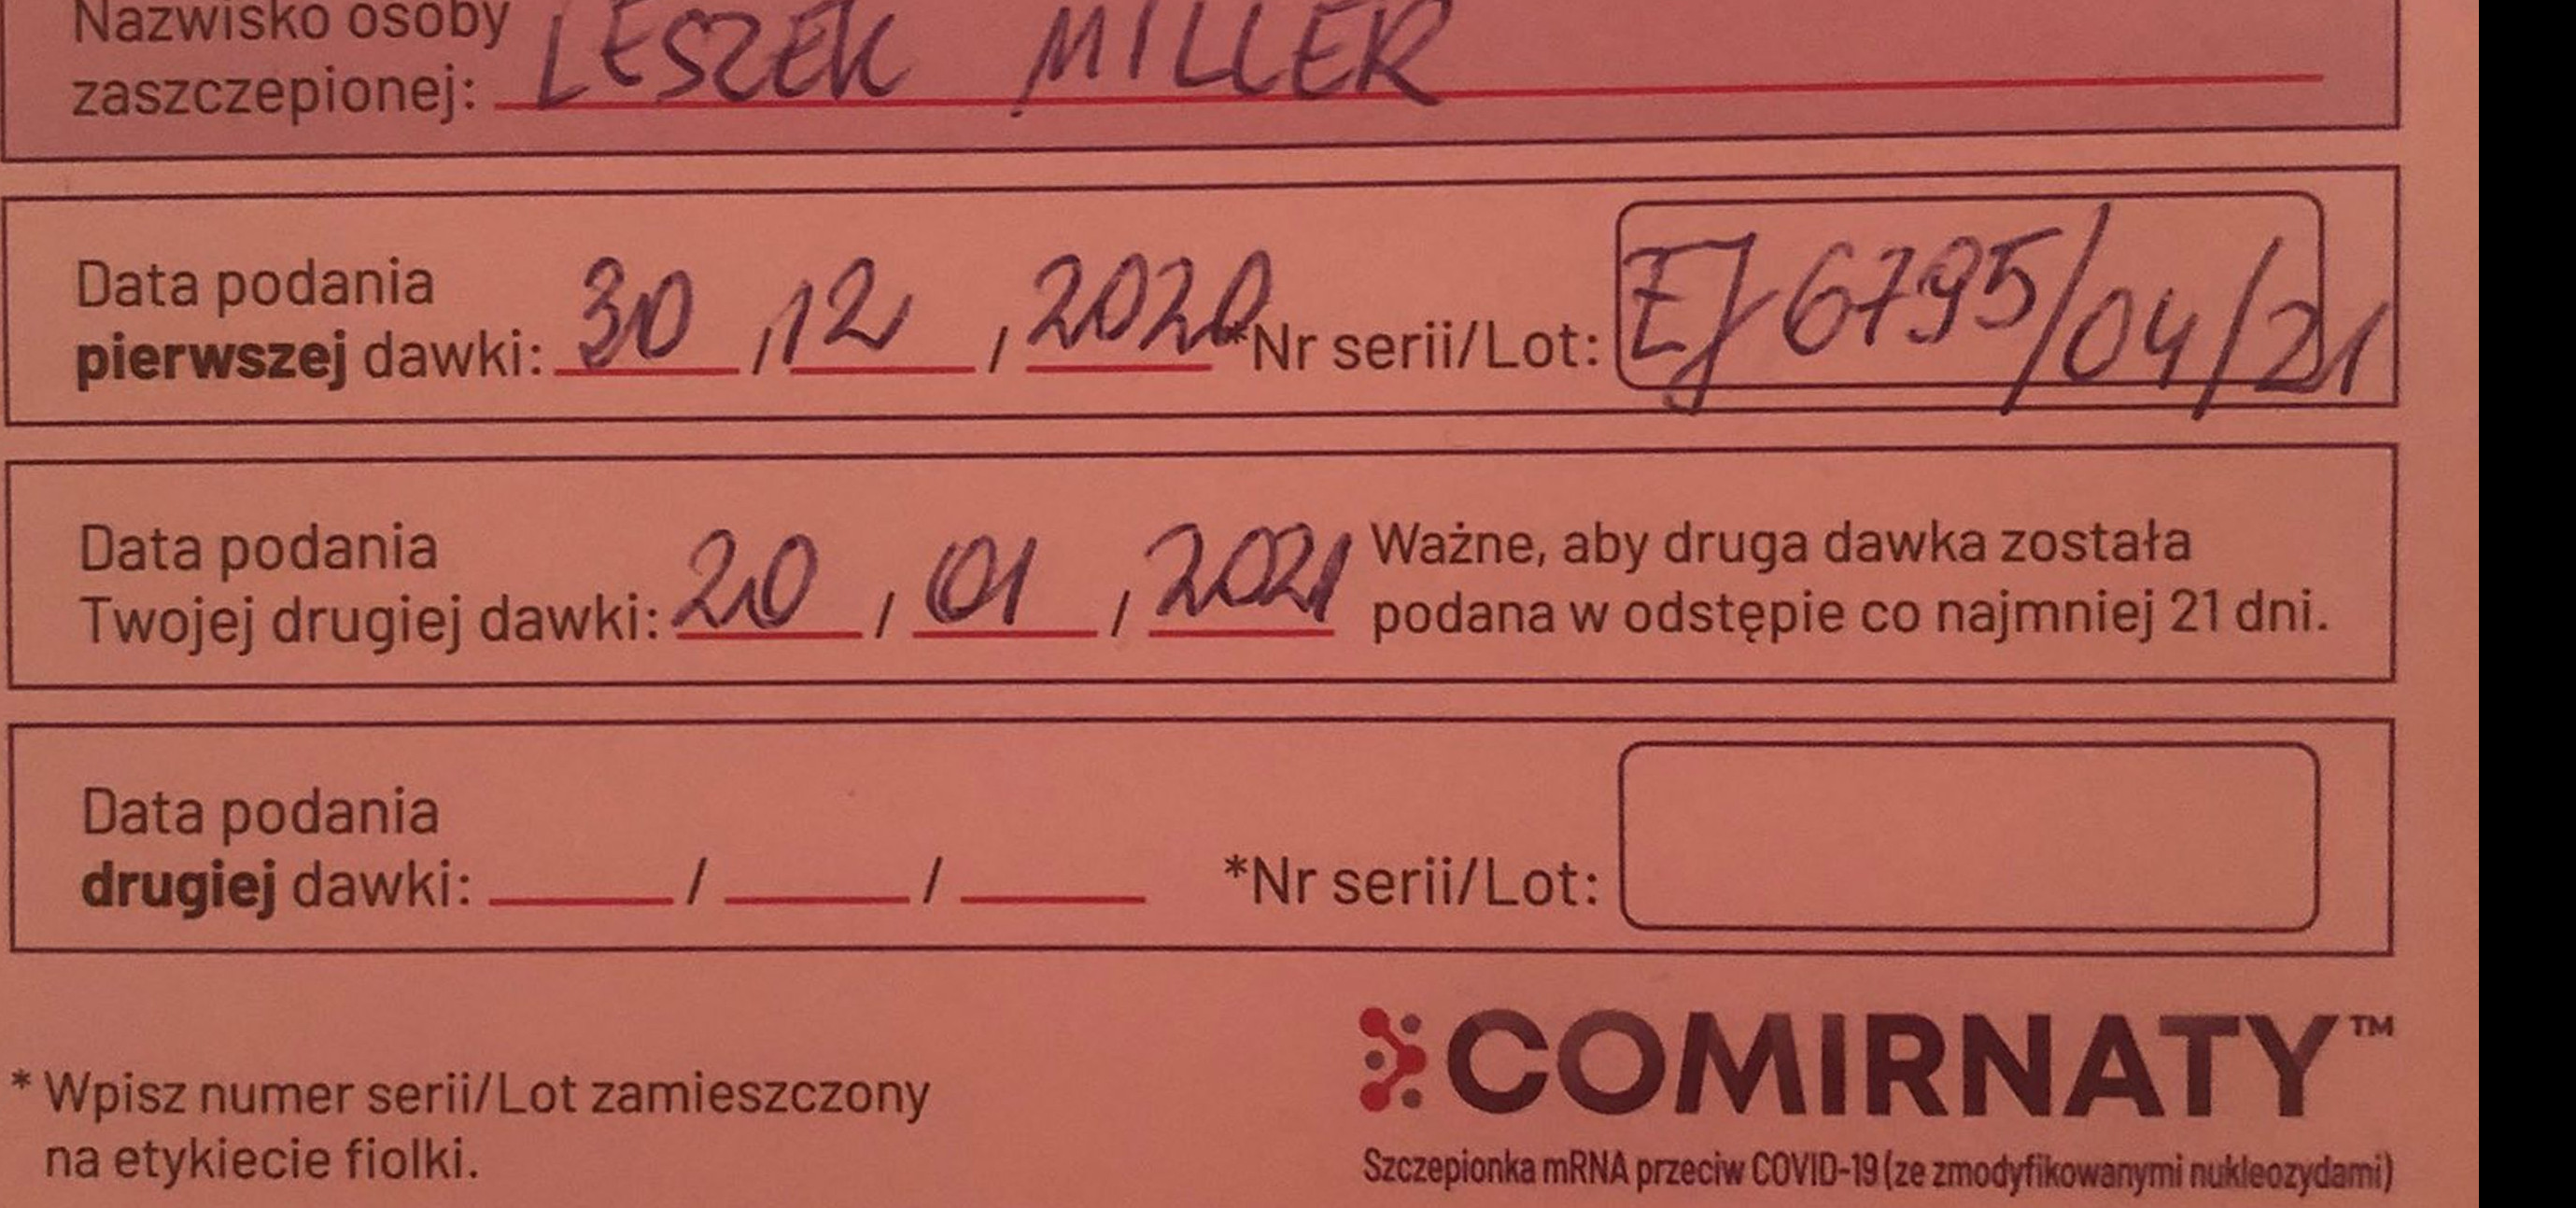 Nazwisko osoby
zaszczepionej: LESZEK MILLER
Data podania
pierwszej dawki: 30 / 12 / 2020 *Nr serii/Lot: EJ 6795/04/21
Data podania
Twojej drugiej dawki: 20 / 01 / 2021
Ważne, aby druga dawka została
podana w odstępie co najmniej 21 dni.
Data podania
drugiej dawki: ___ / ___ / ___ *Nr serii/Lot:
* Wpisz numer serii/Lot zamieszczony
na etykiecie fiolki.
COMIRNATY™
Szczepionka mRNA przeciw COVID-19 (ze zmodyfikowanymi nukleozydami)